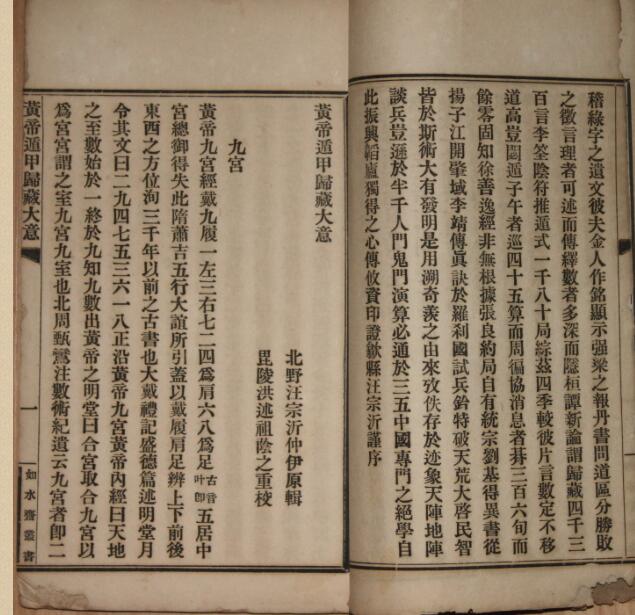 稽綠字之遺文彼夫金人作銘顯示强梁之報丹書問道區分勝敗
之徵言理者可述而傳繹數者多深而隱桓譚新論謂歸藏四千三
百言李筌陰符推遁式一千八十局綜茲四季較彼片言數定不移
道高豈闕遁子午者巡四十五算而周徧協消息者朞三百六旬而
餘零固知徐善逸經非無根據張良約局自有統宗劉基得異書從
揚子江開肇域李靖傳眞訣於羅刹國試兵鈐特破天荒大啓民智
皆於斯術大有發明是用溯奇羨之由來攷佚存於迹象天陣地陣
談兵豈遜於半千人門鬼門演算必通於三五中國專門之絕學自
此振興韜廬獨得之心傳攸資印證歙縣汪宗沂謹序
黃帝遁甲歸藏大意
北野汪宗沂仲伊原輯
毘陵洪述祖蔭之重校
九宮
黃帝九宮經戴九履一左三右七二四爲肩六八爲足古音叶卽五居中
宮總御得失此隋蕭吉五行大誼所引蓋以戴履肩足辨上下前後
東西之方位洵三千年以前之古書也大戴禮記盛德篇述明堂月
令其文曰二九四七五三六一八正沿黃帝九宮黃帝內經曰天地
之至數始於一終於九知九數出黃帝之明堂曰合宮取合九宮以
爲宮宮謂之室九宮九室也北周甄鸞注數術紀遺云九宮者卽二
黃帝遁甲歸藏大意
一
如水齋叢書